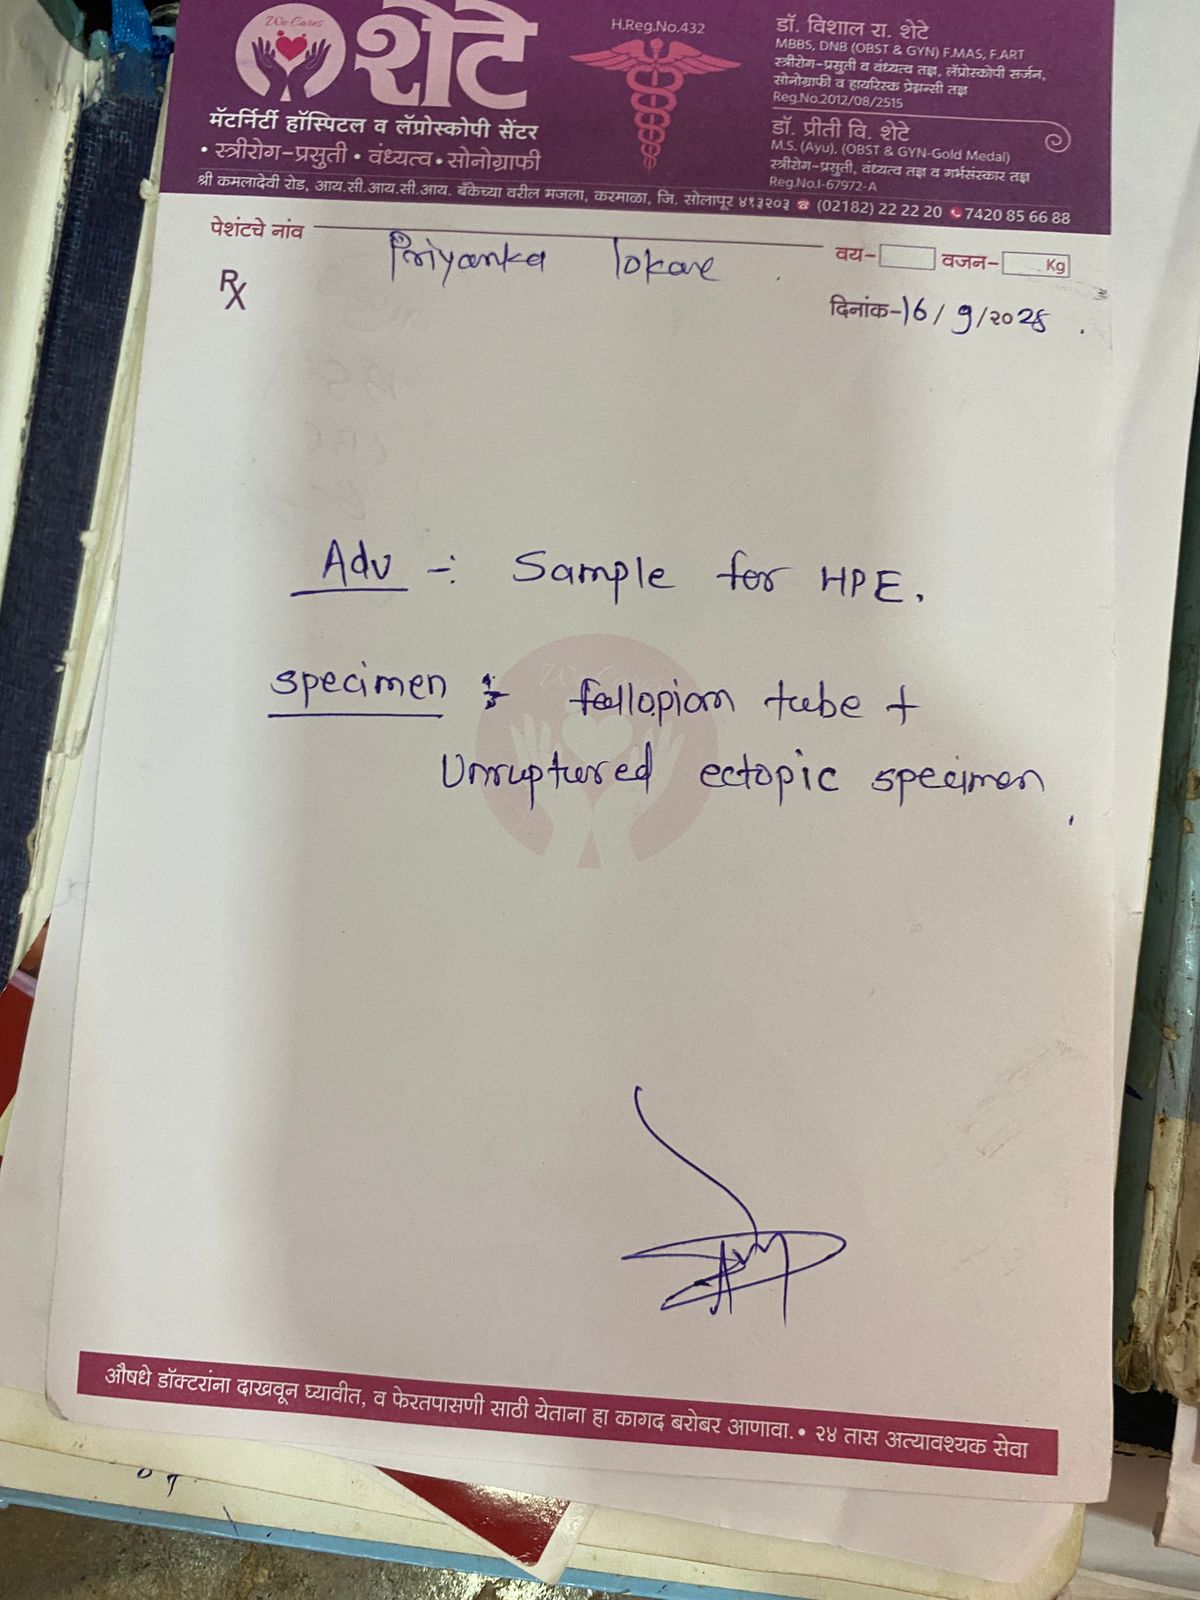 We Cares
शेटे
मॅटर्निटी हॉस्पिटल व लॅप्रोस्कोपी सेंटर
• स्त्रीरोग-प्रसुती • वंध्यत्व • सोनोग्राफी
H.Reg.No.432
डॉ. विशाल रा. शेटे
MBBS, DNB (OBST & GYN) F.MAS, F.ART
स्त्रीरोग-प्रसुती व वंध्यत्व तज्ञ, लॅप्रोस्कोपी सर्जन,
सोनोग्राफी व हायरिस्क प्रेग्नन्सी तज्ञ
Reg.No.2012/08/2515
डॉ. प्रीती वि. शेटे
M.S. (Ayu), (OBST & GYN-Gold Medal)
स्त्रीरोग-प्रसुती, वंध्यत्व तज्ञ व गर्भसंस्कार तज्ञ
Reg.No.I-67972-A
श्री कमलादेवी रोड, आय.सी.आय.सी.आय. बँकेच्या वरील मजला, करमाळा, जि. सोलापूर ४१३२०३ ☎ (02182) 22 22 20 7420 85 66 88
पेशंटचे नांव Priyanka lokare वय- वजन- Kg
Rx
दिनांक-16/9/२०
Adv -: Sample for HPE.
specimen :- fallopian tube +
Unruptured ectopic specimen.
औषधे डॉक्टरांना दाखवून घ्यावीत, व फेरतपासणी साठी येताना हा कागद बरोबर आणावा. • २४ तास अत्यावश्यक सेवा